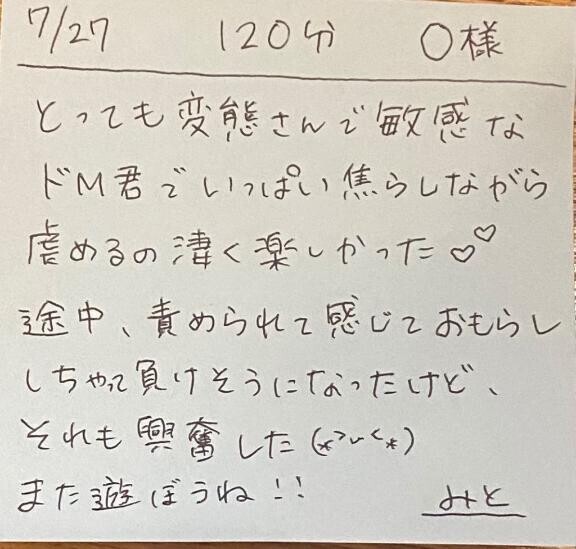 7/27 120分 〇様
とっても変態さんで敏感な
ドM君でいっぱい焦らしながら
虐めるの凄く楽しかった♡♡
途中、責められて感じておもらし
しちゃって負けそうになったけど、
それも興奮した(*>ᴗ<*)
また遊ぼうね!!
みと